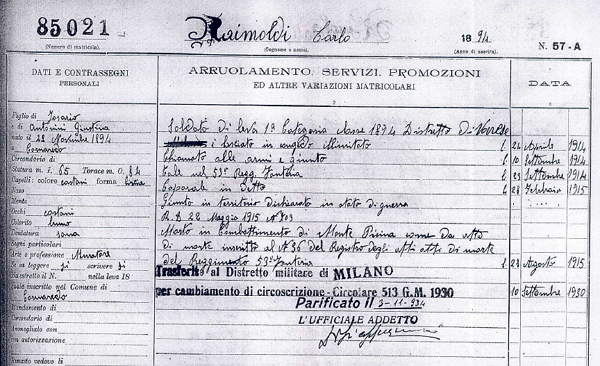 85021
(Numero di matricola)
Raimoldi Carlo
(Cognome e nome)
1894
(Anno di nascita)
N. 57-A
DATI E CONTRASSEGNI
PERSONALI
ARRUOLAMENTO, SERVIZI, PROMOZIONI
ED ALTRE VARIAZIONI MATRICOLARI
DATA
Figlio di
e di Antonini Giustina
nato il 22 Novembre 1894
Cornaredo
Circondario di
Statura m. 1, 65 Torace m. 0, 84
Capelli: colore castani forma
Naso
Mento
Occhi castani
Colorito bruno
Dentatura sana
Segni particolari
Arte o professione Muratore
Se sa leggere si scrivere si
Distretto il N. nella leva 18
Quale inscritto nel Comune di
Cornaredo
Mandamento di
Circondario di
Ammogliato con
con autorizzazione
Rimasto vedovo li
Soldato di leva 1ª Categoria classe 1894 Distretto di Varese
e lasciato in congedo illimitato
24 Aprile 1914
Chiamato alle armi e giunto
10 Settembre 1914
Tale nel 53° Regg. Fanteria
23 Settembre 1914
Caporale in detto
28 Febbraio 1915
Giunto in territorio dichiarato in stato di guerra
R.D. 22 Maggio 1915 N° 703
Morto in Combattimento di Monte Piana come da atto
di morte inscritto al N° 36 del Registro degli atti di morte
del Reggimento 53° Fanteria
23 Agosto 1915
Trasferito al Distretto militare di MILANO
per cambiamento di circoscrizione - Circolare 513 G.M. 1930
10 Settembre 1930
Parificato il 3-11-934
L'UFFICIALE ADDETTO